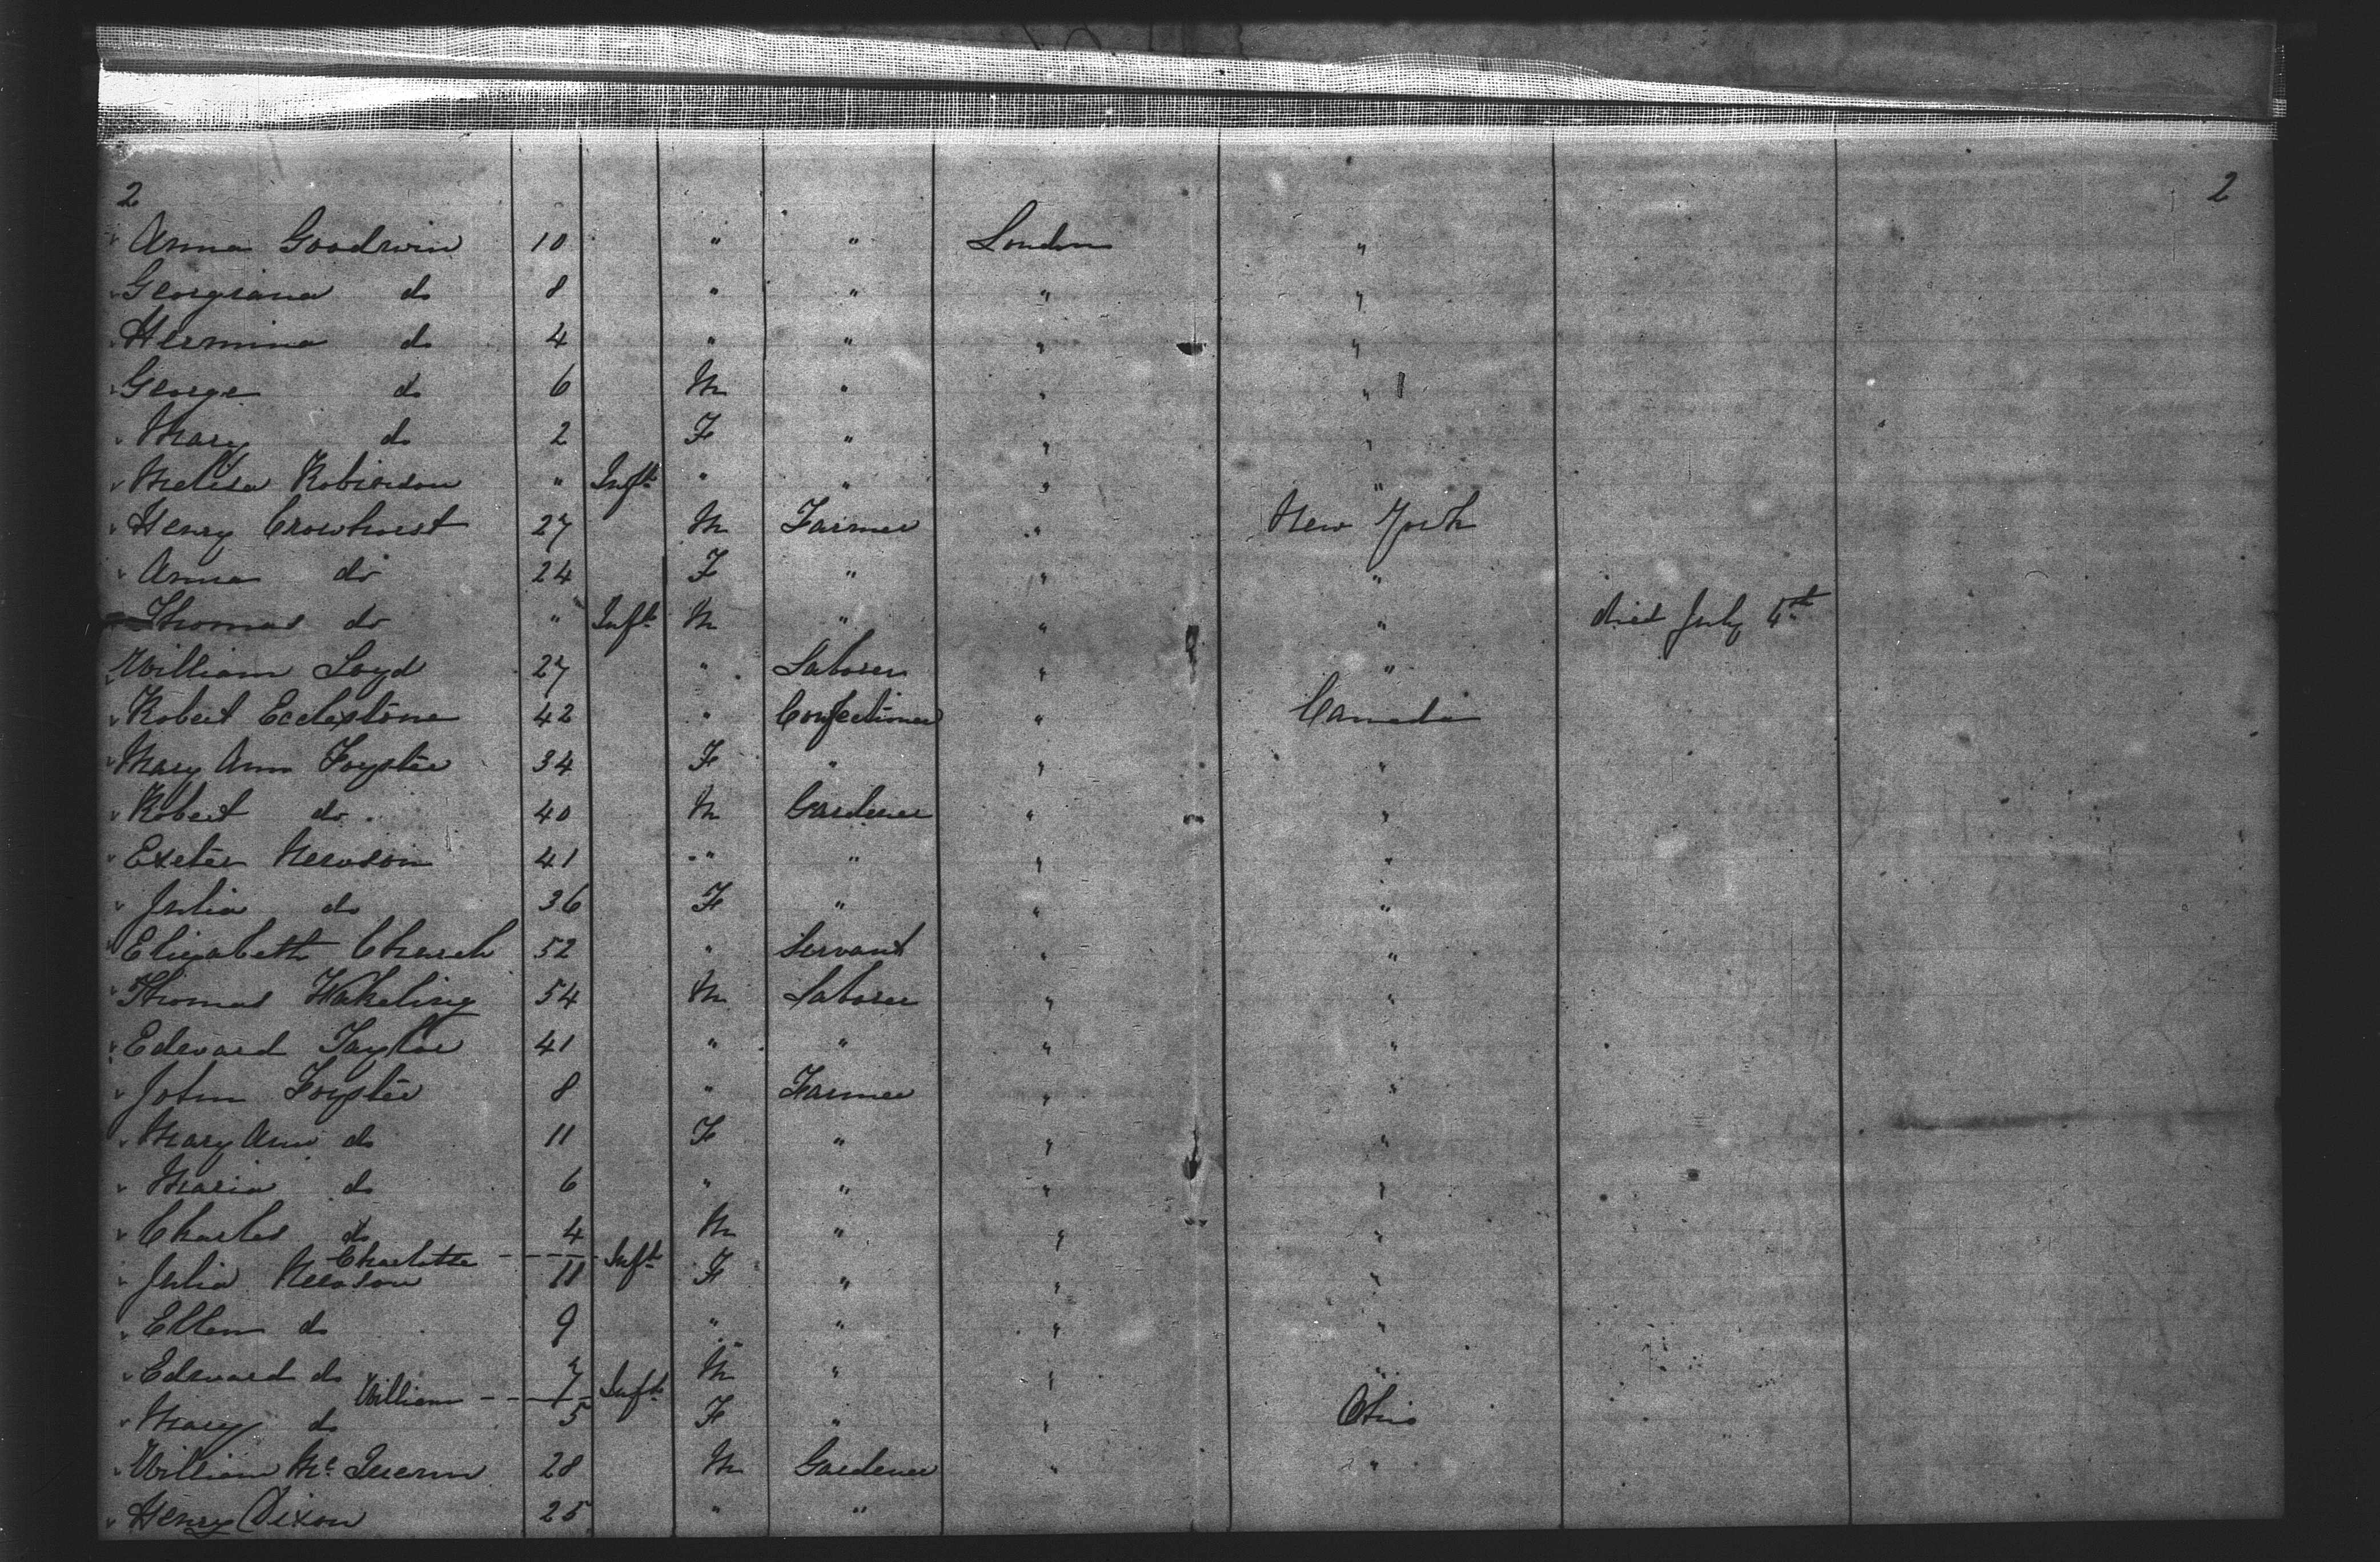 2 2
Anna Goodwin 10 " " London "
Georgiana do 8 " " " "
Hermina do 4 " " " "
George do 6 M " " "
Mary do 2 F " " "
Melisa Robinson " Inft " " " "
Henry Crowhurst 27 M Farmer " New York
Anna do 24 F " " "
Thomas do " Inft M " " " died July 5th
William Loyd 27 " Laborer " "
Robert Ecclestone 42 " Confectioner " Canada
Mary Ann Foyster 34 F " " "
Robert do 40 M Gardener " "
Exeter Newson 41 " " " "
Julia do 36 F " " "
Elizabeth Church 52 " Servant " "
Thomas Wakeling 54 M Laborer " "
Edward Taylor 41 " " " "
John Foyster 8 " Farmer " "
Mary Ann do 11 F " " "
Maria do 6 " " " "
Charles do 4 M " " "
Charlotte - - - - Inft
Julia Newson 11 F " " "
Ellen do 9 " " " "
Edward do 7 M " " "
William - - - - Inft
Mary do 5 F " " Ohio
William Mc Queen 28 M Gardener " "
Henry Dixon 25 " "